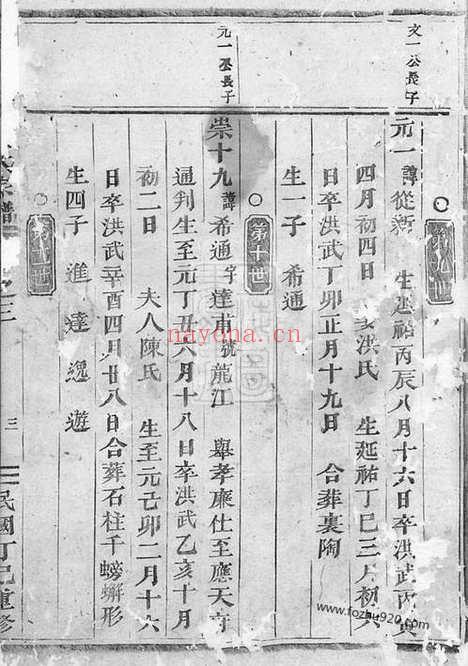 第九世
文一公長子
元一 諱從新 生延祐丙辰八月十六日卒洪武丙寅
四月初四日 娶洪氏 生延祐丁巳三月初六
日卒洪武丁卯正月十九日 合葬裏陶
生一子 希通
第十世
元一公長子
崇十九 諱希通字達甫號龍江 舉孝廉仕至應天府
通判生至元丁丑六月十八日卒洪武乙亥十月
初二日 夫人陳氏 生至元己卯二月十六
日卒洪武辛酉四月廿八日合葬石柱千螃蠏形
生四子 進 達 逸 遊
第十一世
宗譜
三
民國丁巳重修
nayona.cn
www.fozhu920.com